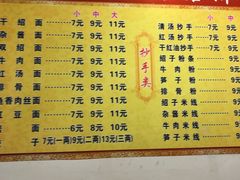 小 中 大
干绍面 7元 9元 11元
杂酱面 7元 9元 11元
双绍面 7元 9元 11元
牛肉面 7元 9元 11元
红汤面 7元 9元 11元
排骨面 7元 9元 11元
鱼香肉丝面 7元 9元 11元
豆面 7元 9元 11元
面 6元 8元 10元
子 7元(一两)9元(二两)13元(三两)
抄手类
小 中
清汤抄手 7元 9元
干抄手 7元 9元
干红油抄手 7元 9元
绍子条粉 9元 11元
牛肉粉 9元 11元
笋子粉 9元 11元
排骨粉 9元 11元
绍子米线 9元 11元
杂酱米线 9元 11元
笋子米线 9元 11元
牛肉米线 9元 11元